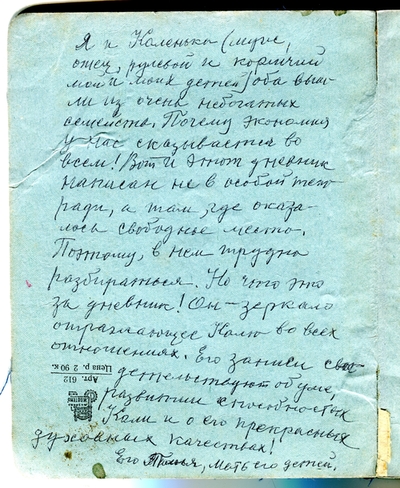 Я и Коленька (муж,
отец, рулевой и кормчий
мой и моих детей) оба выш-
ли из очень небогатых
семейств. Почему экономия
у нас сказывается во
всем! Вот и этот дневник
написан не в особой тет-
ради, а там, где оказа-
лось свободное место.
Поэтому, в нем трудно
разбираться. Но что это
за дневник! Он – зеркало
отражающее Колю во всех
отношениях. Его записи сви-
детельствуют об уме,
развитии способностях
Коли и о его прекрасных
духовных качествах!
Его Танья, мать его детей.
Арт. 612
Цена р. 2 90 к.